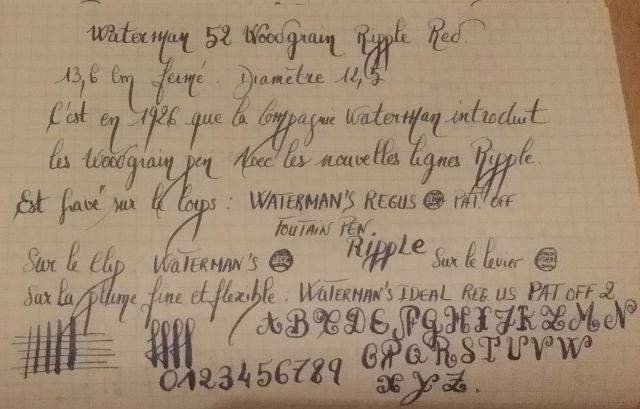 Waterman 52 Woodgrain Ripple Red.
13,6 Cm fermé. Diamètre 12,5
C'est en 1926 que la Compagnie Waterman introduit
les Woodgrain pen Avec les nouvelles lignes Ripple.
Est gravé sur le Corps : WATERMAN'S REGUS PAT. OFF
FOUTAIN PEN.
Ripple
Sur le Clip WATERMAN'S Sur le levier
Sur la plume fine et flexible : WATERMAN'S IDEAL REG US PAT. OFF 2
A B C D E F G H I J K L M N
O P Q R S T U V W
0123456789 X Y Z.